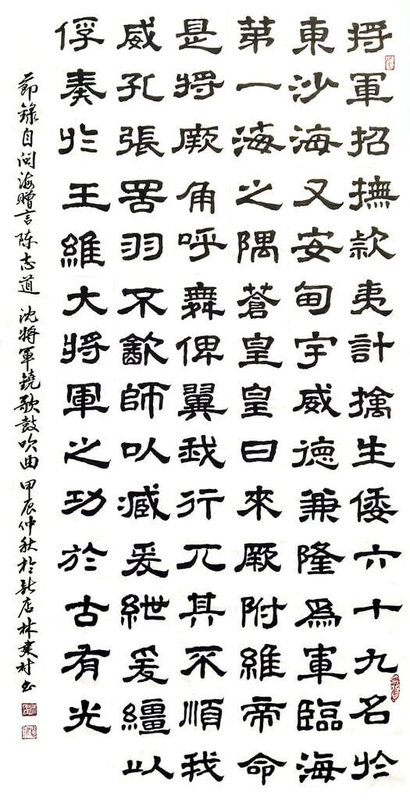 將軍招撫款夷計擒生倭六十九名扵
東沙海又安甸宇威德兼隆爲軍臨海
第一海之隅蒼皇皇曰來厥附維帝命
是將厥角呼舞俾翼我行兀其不順我
威孔張罟羽不歊師以臧爰紲爰繮以
俘奏扵王維大將軍之功於古有光
節錄自閩海贈言陈志道 沈將軍鐃歌鼓吹曲 甲辰仲秋扵新店林業村書